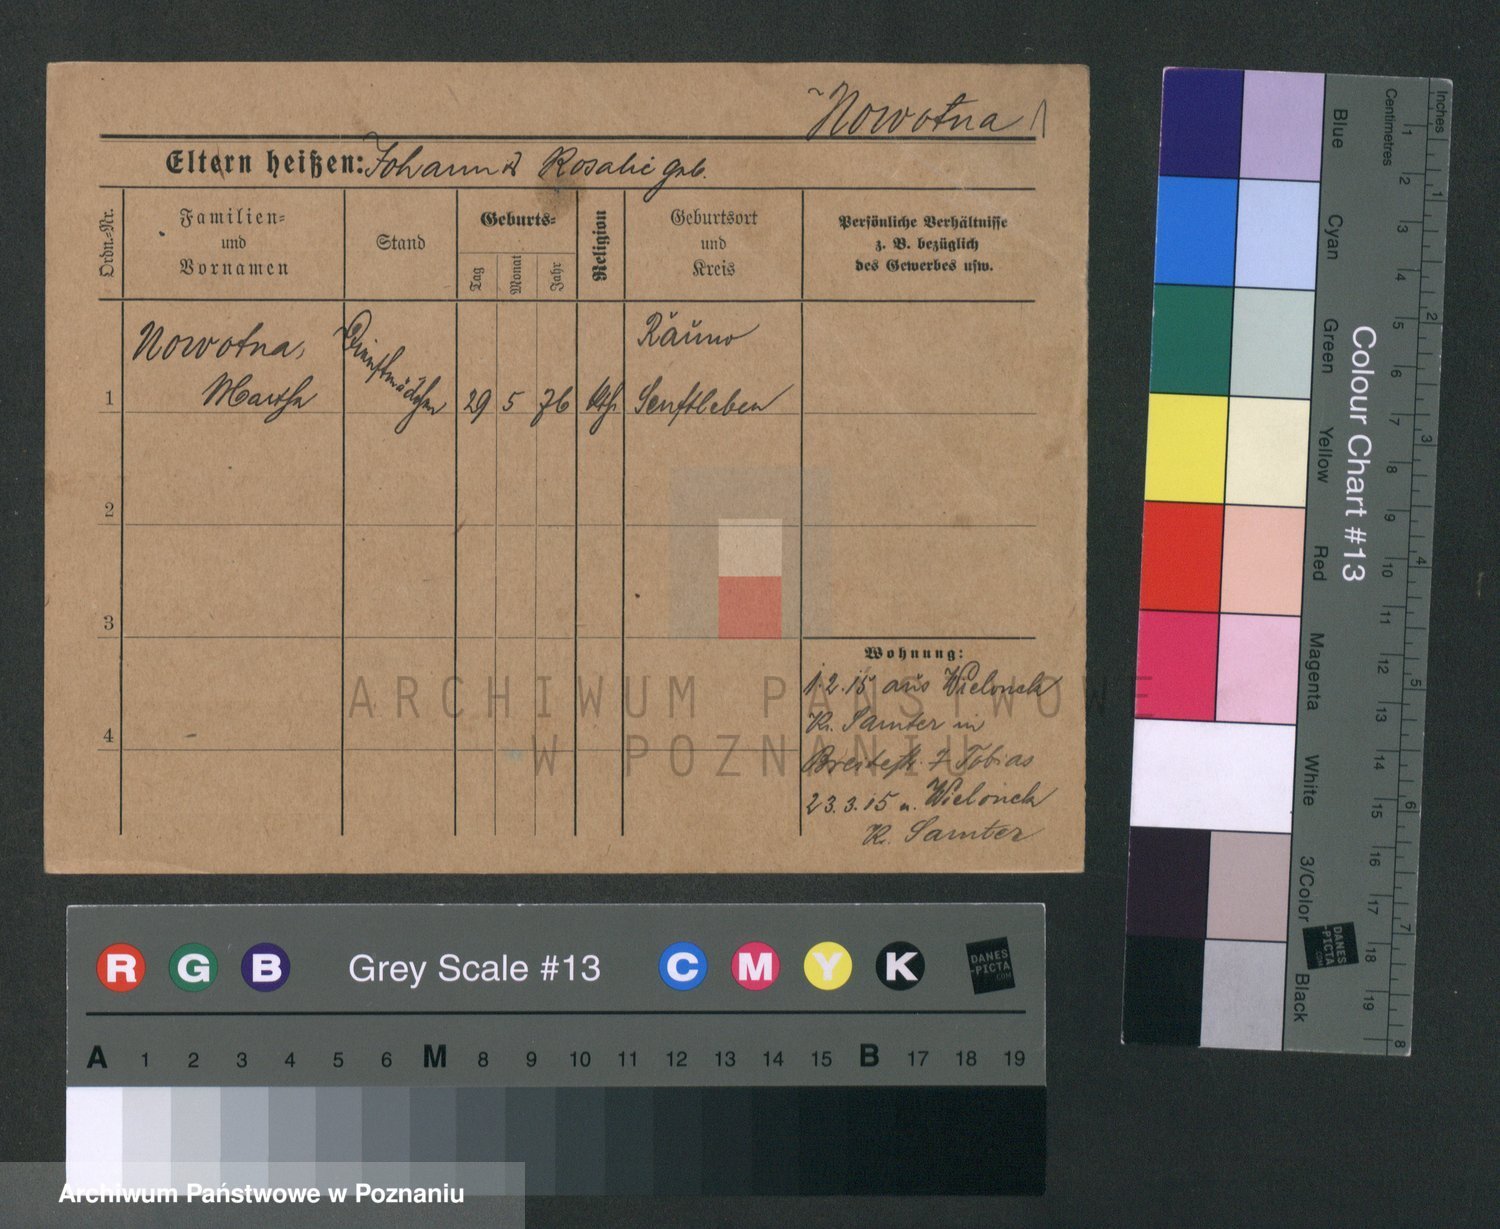 Nowotna
Eltern heißen: Johann & Rosalie geb.
Ordn.-Nr.
Familien-
und
Vornamen
Stand
Geburts-
Tag
Monat
Jahr
Religion
Geburtsort
und
Kreis
Persönliche Verhältnisse
z. B. bezüglich
des Gewerbes usw.
Nowotna,
Martha
Dienstmädchen
1
29 5 76 kth.
Räuno
Senftleben
2
3
4
Wohnung:
1.2.15 aus Wielonek
Kr. Samter in
Breitestr. 7 Tobias
23.3.15 n. Wielonek
Kr. Samter
ARCHIWUM PAŃSTWOWE
W POZNANIU
R G B Grey Scale #13 C M Y K
DANES
-PICTA
.COM
A 1 2 3 4 5 6 M 8 9 10 11 12 13 14 15 B 17 18 19
Archiwum Państwowe w Poznaniu
Colour Chart #13
Blue
Cyan
Green
Yellow
Red
Magenta
White
3/Color
Black
Centimetres
1 2 3 4 5 6 7 8 9 10 11 12 13 14 15 16 17 18 19
Inches
1 2 3 4 5 6 7 8
DANES
-PICTA
.COM